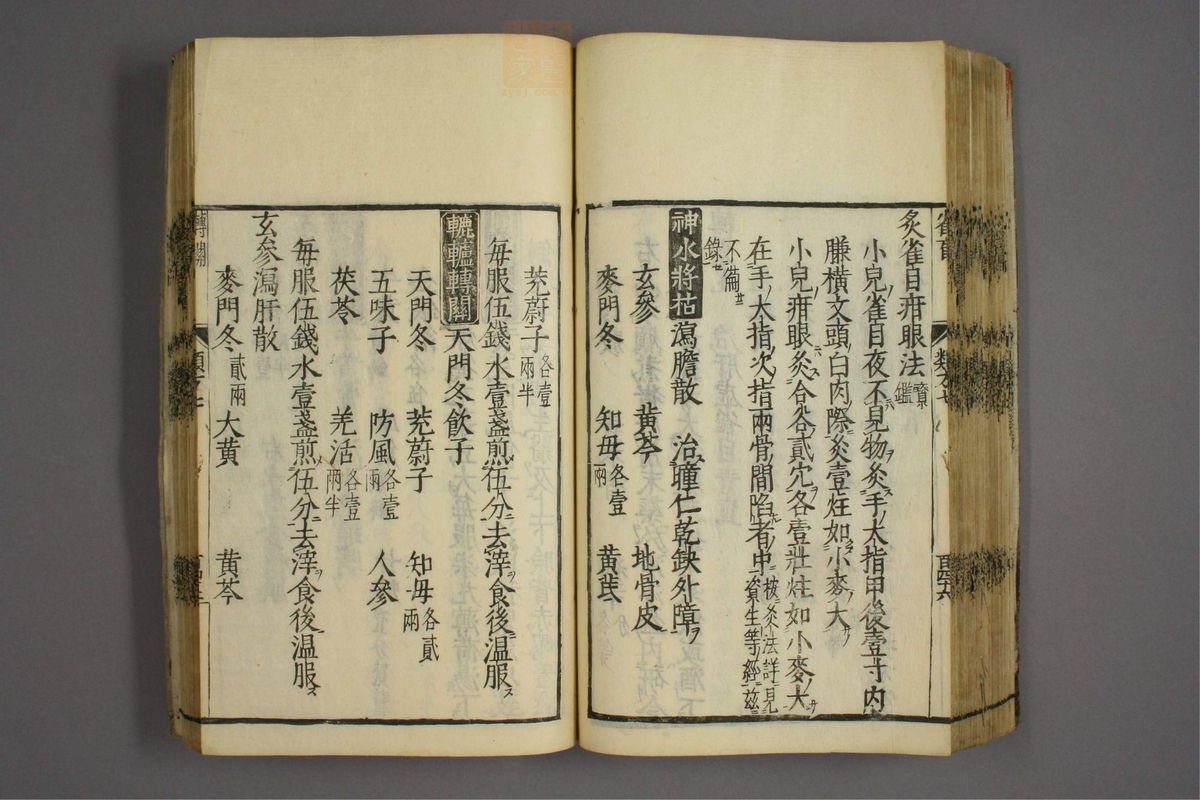 灸雀目疳眼法寶鑑
小兒雀目夜不見物灸手大指甲後壹寸内
臁橫文頭白肉際灸壹炷如小麥大
小兒疳眼灸合谷貳穴各壹壯炷如小麥大
在手大指次指兩骨間陷者中按灸法詳見資生等經茲
不備錄
神水將枯瀉膽散　治瞳仁乾缺外障
玄參　黄芩　地骨皮
麥門冬　知母各壹兩　黄芪
茺蔚子各壹兩半
每服伍錢水壹盞煎伍分去滓食後温服
轆轤轉關天門冬飲子
天門冬　茺蔚子　知母各貳兩
五味子　防風各壹兩　人參
茯苓　羌活各壹兩半
每服伍錢水壹盞煎伍分去滓食後温服
玄參瀉肝散
麥門冬貳兩　大黄　黄芩